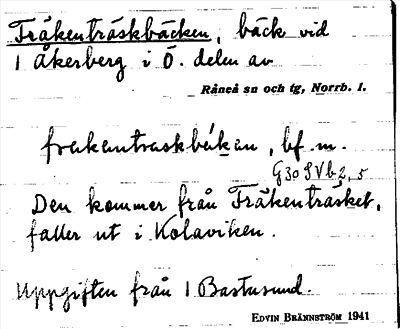 Fräkenträskbäcken, bäck vid
1 Åkerberg i Ö. delen av
Råneå sn och tg, Norrb. l.
frakentraskbäkan, bf. m.
G30 SVb2,5
Den kommer från Fräkenträsket,
faller ut i Kolaviken.
Uppgiften från 1 Bastusund.
EDVIN BRÄNNSTRÖM 1941